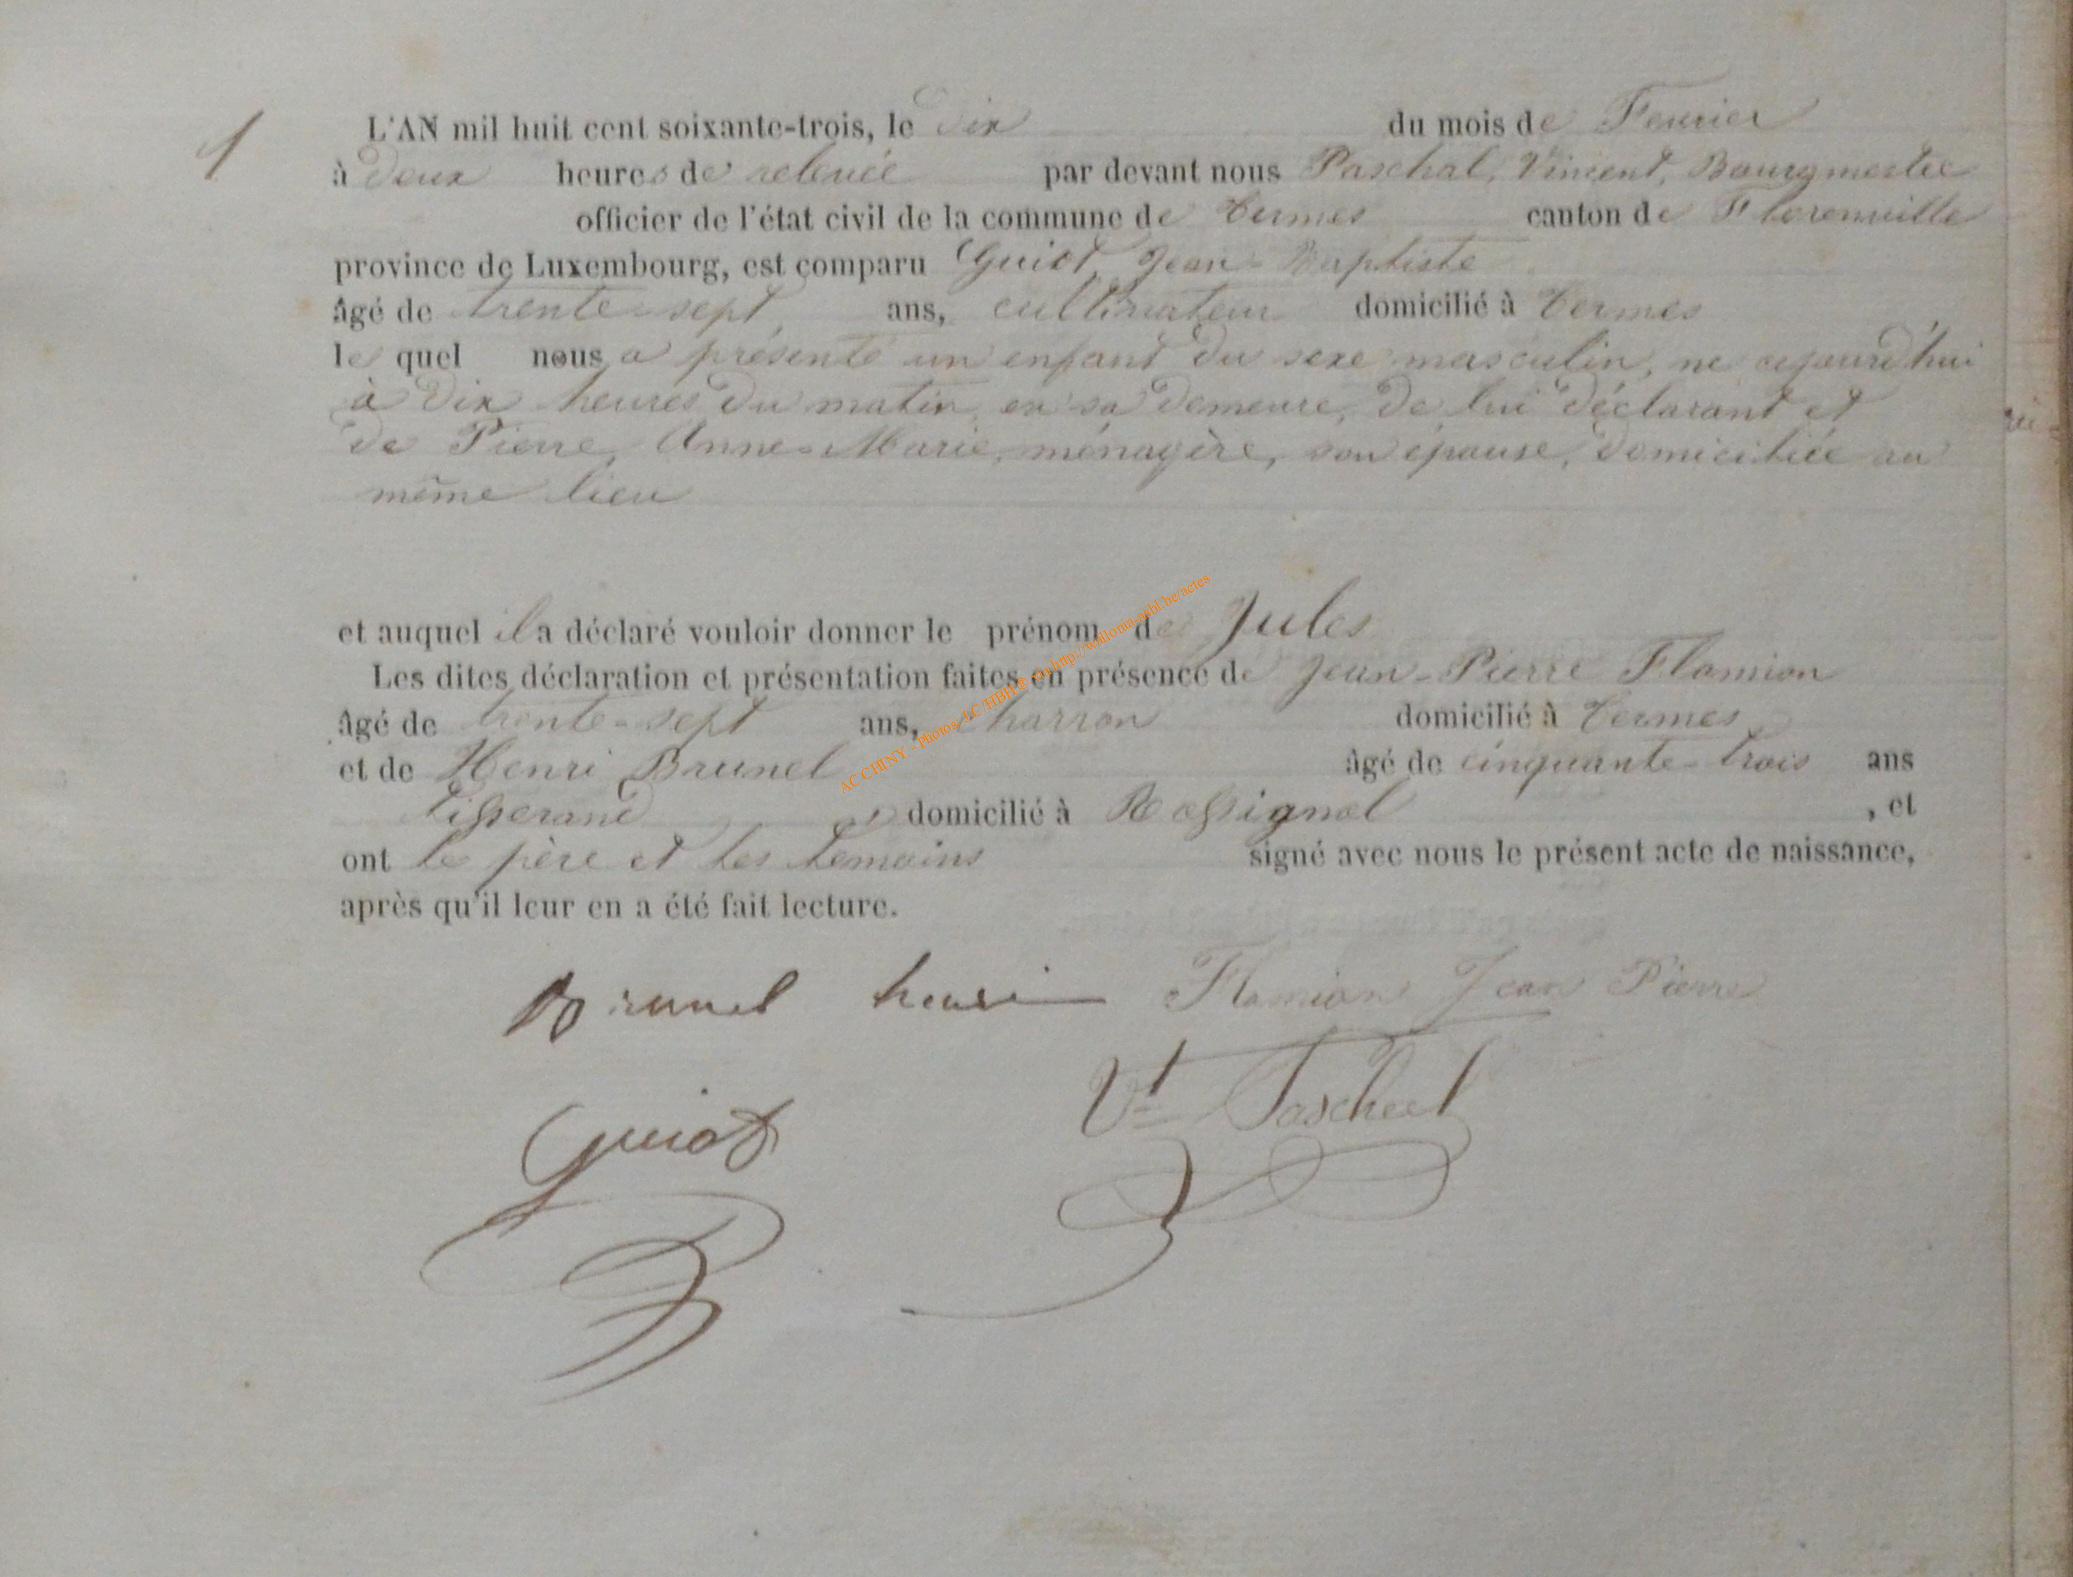 1
L'AN mil huit cent soixante-trois, le dix du mois de Fevrier
à deux heures de relevée par devant nous Paschal, Vincent, Bourgmestre
officier de l'état civil de la commune de Termes canton de Florenville
province de Luxembourg, est comparu Guiot, Jean-Baptiste
âgé de trente-sept ans, cultivateur domicilié à Termes
le quel nous a présenté un enfant du sexe masculin, né cejourd'hui
à dix heures du matin, en sa demeure, de lui déclarant et
de Pierre, Anne-Marie, ménagère, son épouse, domiciliée au
même lieu
et auquel il a déclaré vouloir donner le prénom de Jules
Les dites déclaration et présentation faites en présence de Jean-Pierre Flamion
âgé de trente-sept ans, charron domicilié à Termes
et de Henri Brunel âgé de cinquante-trois ans
tisserand, domicilié à Rossignol, et
ont le père et les témoins signé avec nous le présent acte de naissance,
après qu'il leur en a été fait lecture.
Brunel henri Flamion Jean Pierre
Guiot Vt Paschal